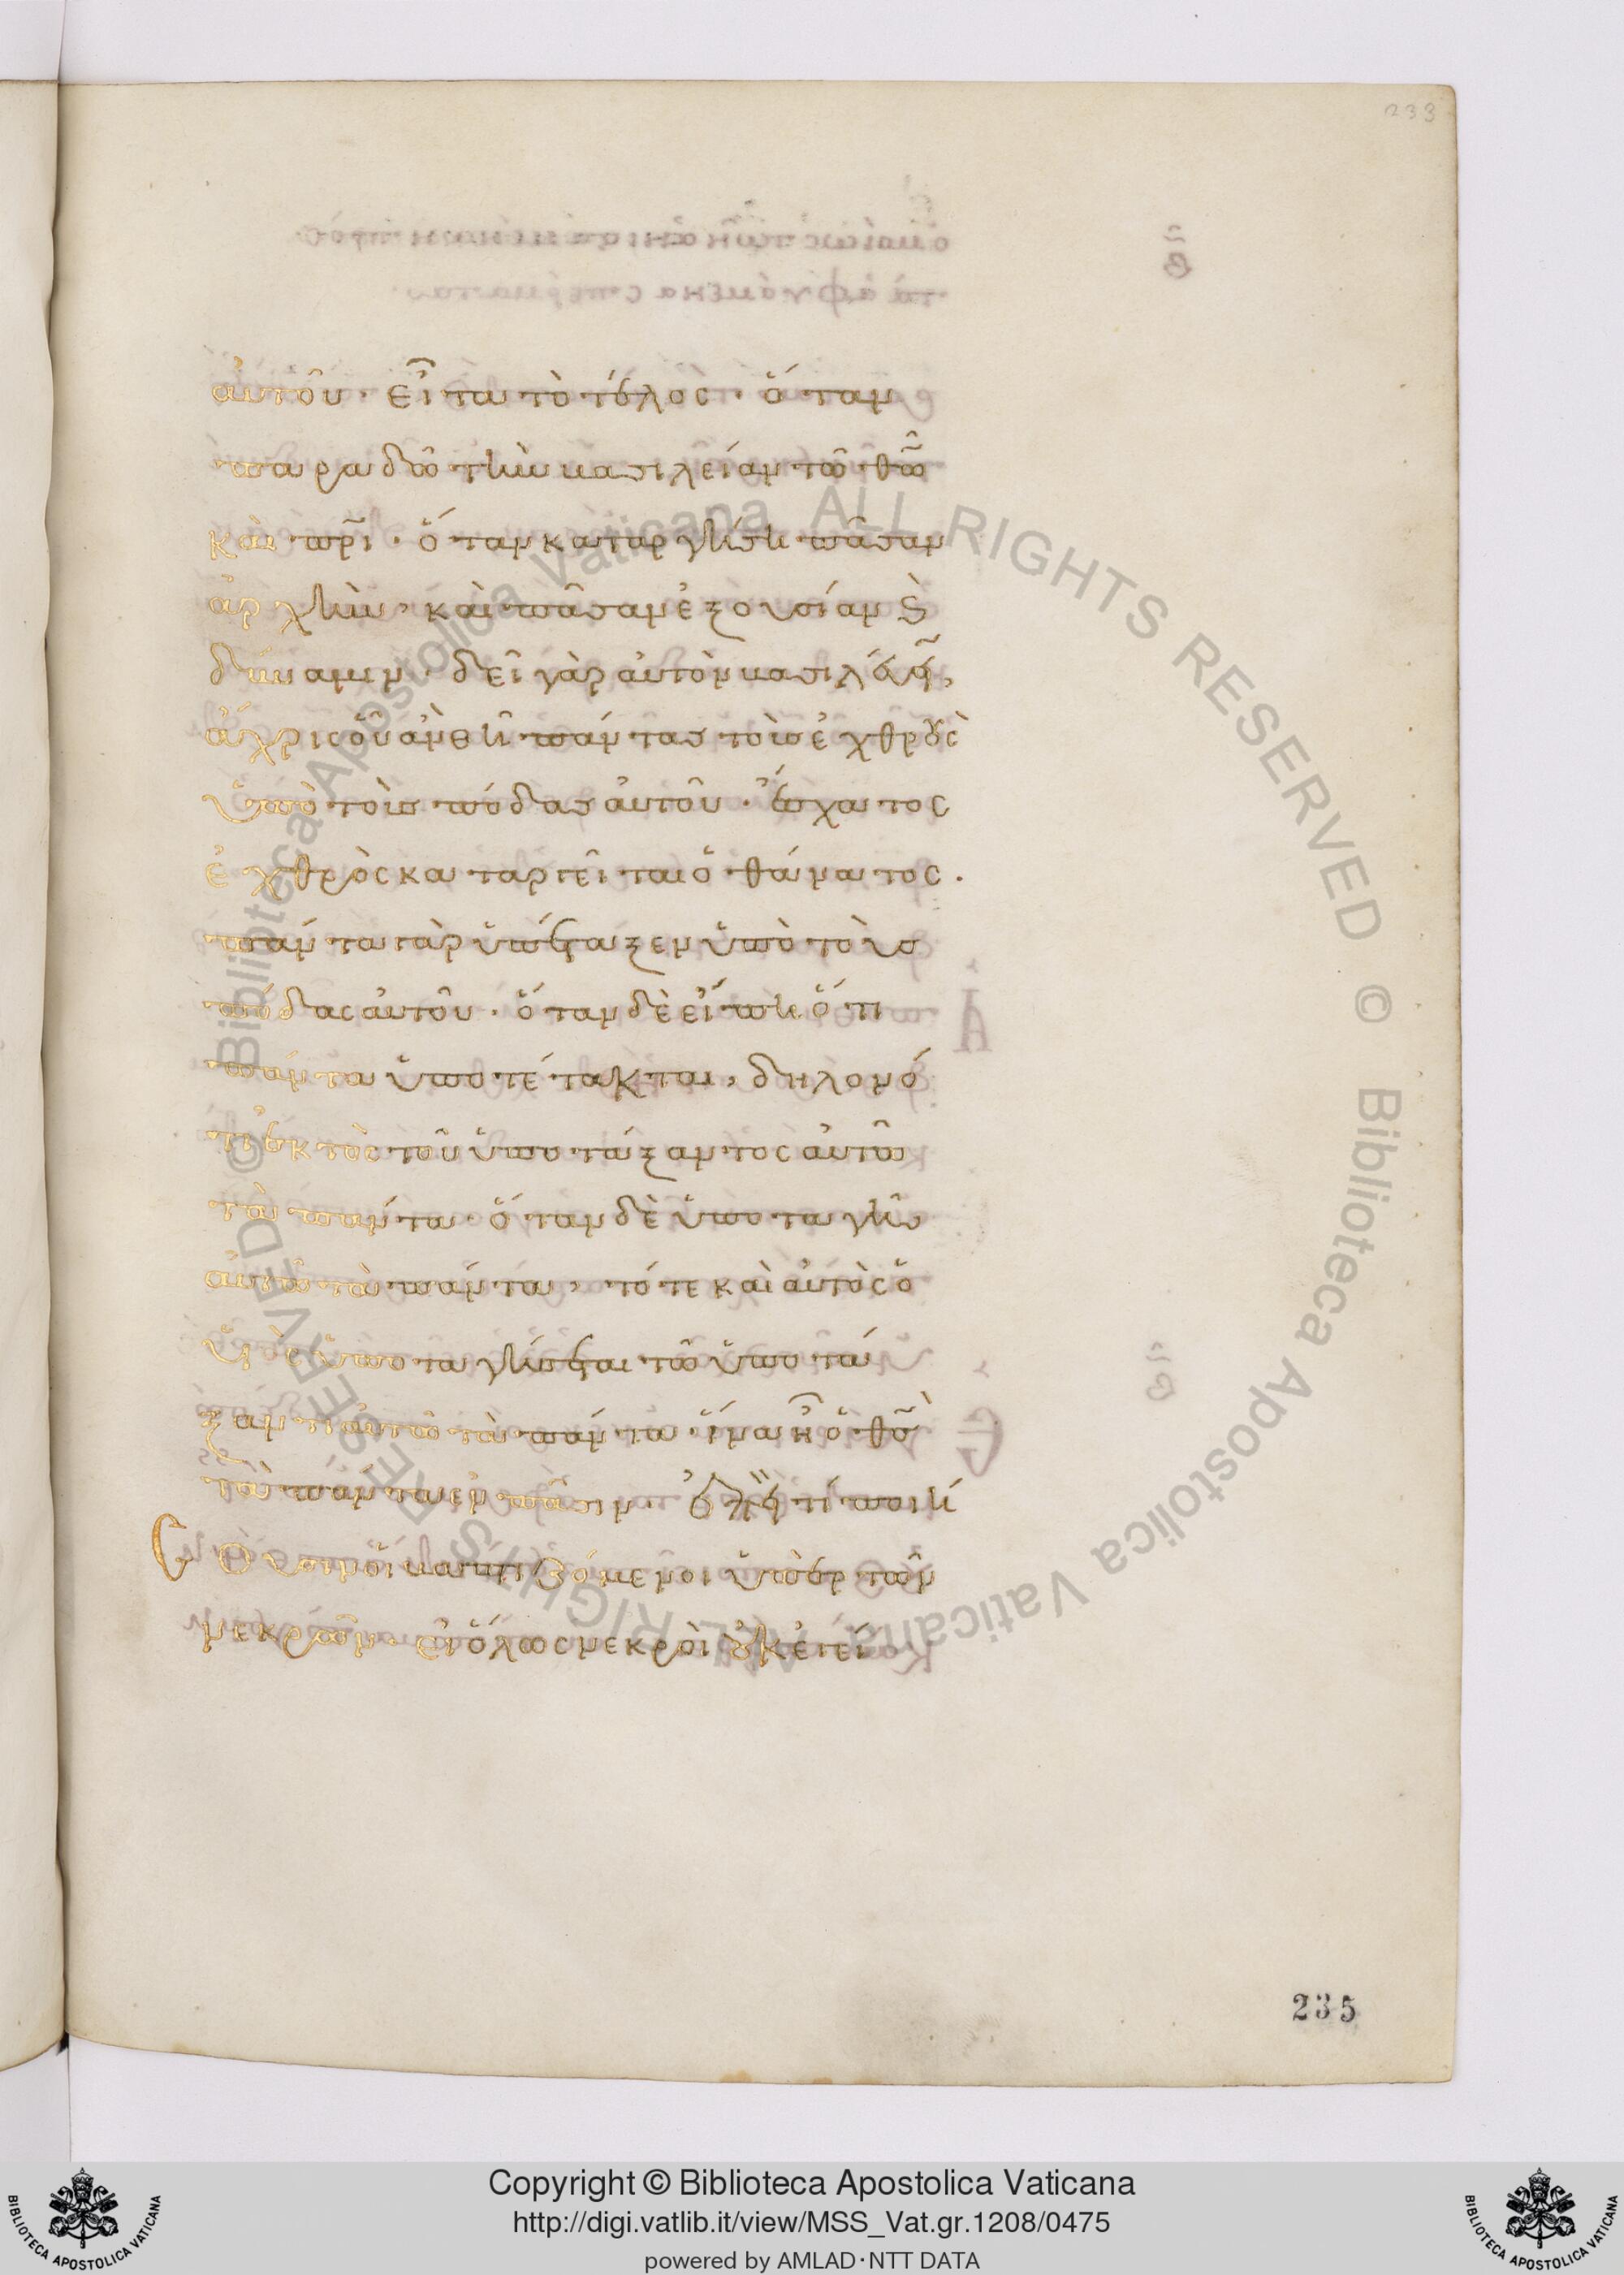 233
αὐτοῦ · εἶτα τὸ τέλος · ὅταν
παραδῶ τὴν βασιλείαν τῶ θω̃
καὶ πρ̃ι · ὅταν καταργήση πᾶσαν
ἀρχὴν, καὶ πᾶσαν ἐξουσίαν ϗ
δύναμιν · δεῖ γὰρ αὐτὸν βασιλεύειν,
ἄχρις οὗ ἂν θῆ πάντας τοὺς ἐχθροὺς
ὑπὸ τοὺς πόδας αὐτοῦ · ἔσχατος
ἐχθρὸς καταργεῖται ὁ θάνατος ·
πάντα γὰρ ὑπέταξεν ὑπὸ τοὺς
πόδας αὐτοῦ · ὅταν δὲ εἴπη ὅτι
πάντα ὑποτέτακται, δηλονό
τι ἐκτὸς τοῦ ὑποτάξαντος αὐτῶ
τὰ πάντα · ὅταν δὲ ὑποταγῆ
αὐτῶ τὰ πάντα, τότε καὶ αὐτὸς ὁ
υἱὸς ὑποταγήσεται τῶ ὑποτά
ξαντι αὐτῶ τὰ πάντα · ἵνα ἦ ὁ θς̃
τὰ πάντα ἐν πᾶσιν · ἐπεὶ τί ποιή
σουσιν οἱ βαπτιζόμενοι ὑπὲρ τῶν
νεκρῶν · εἰ ὅλως νεκροὶ οὐκ ἐγεί
235
Biblioteca Apostolica Vaticana ALL RIGHTS RESERVED © Biblioteca Apostolica Vaticana ALL RIGHTS RESERVED ©
Copyright © Biblioteca Apostolica Vaticana
http://digi.vatlib.it/view/MSS_Vat.gr.1208/0475
powered by AMLAD·NTT DATA
BIBLIOTECA APOSTOLICA VATICANA
BIBLIOTECA APOSTOLICA VATICANA